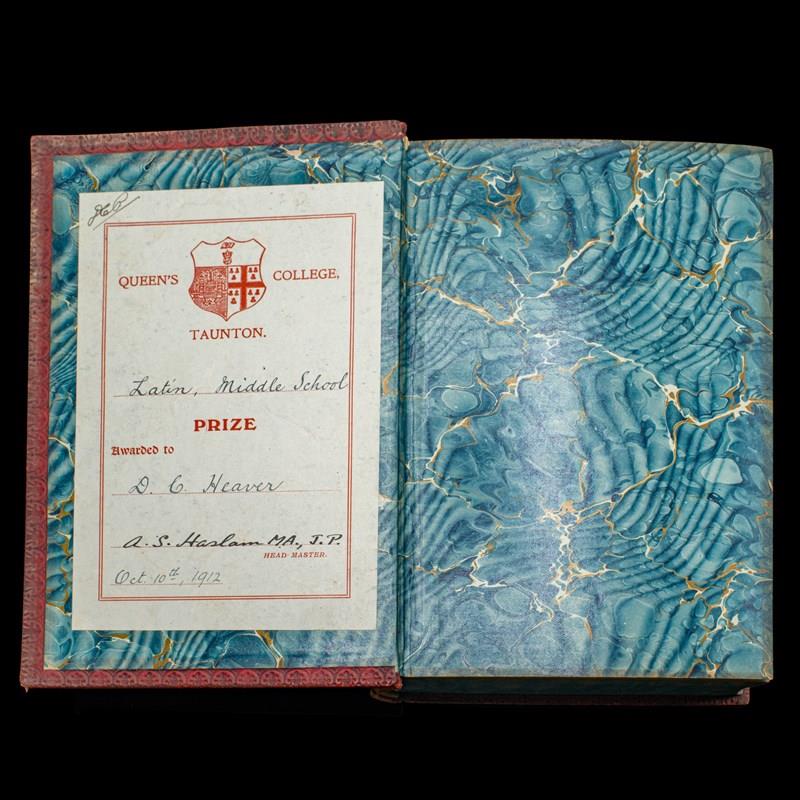 QUEEN'S COLLEGE,
TAUNTON.
Latin, Middle School
PRIZE
Awarded to
D. C. Heaver
A. S. Haslam M.A., J.P.
HEAD-MASTER.
Oct. 10th, 1912